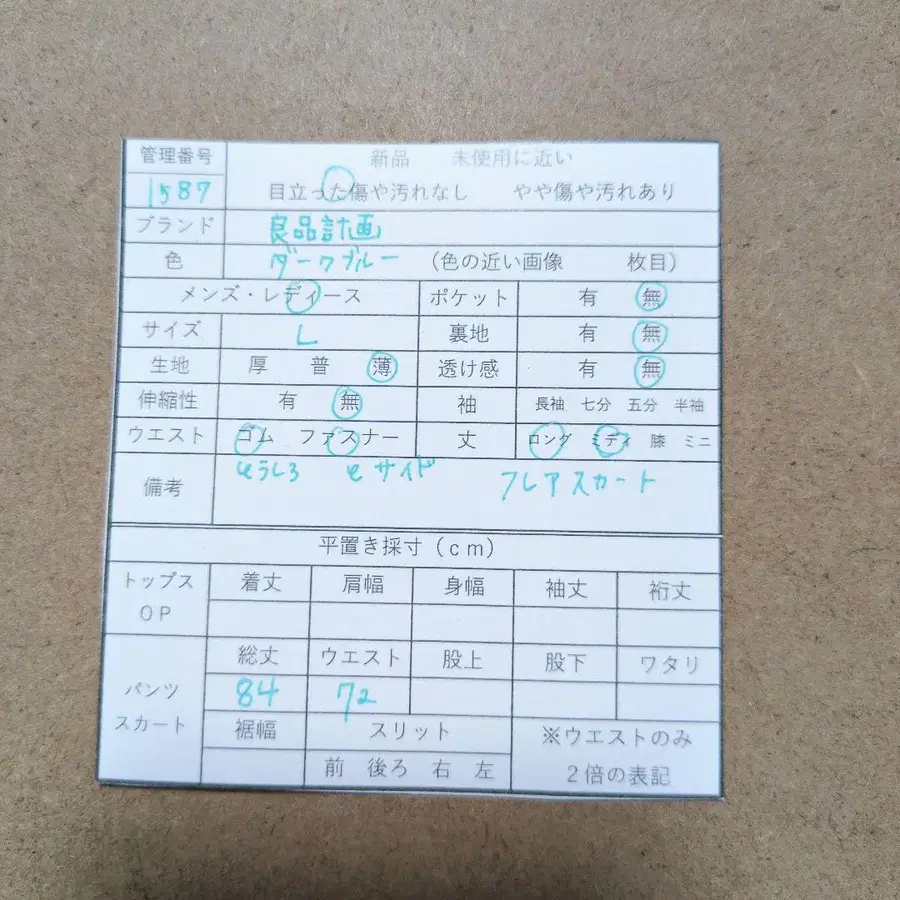 管理番号 新品 未使用に近い
1587 目立った傷や汚れなし やや傷や汚れあり
ブランド 良品計画
色 ダークブルー (色の近い画像 枚目)
メンズ・レディース ポケット 有 無
サイズ L 裏地 有 無
生地 厚 普 薄 透け感 有 無
伸縮性 有 無 袖 長袖 七分 五分 半袖
ウエスト ゴム ファスナー 丈 ロング ミディ 膝 ミニ
備考 うしろ サイド フレアスカート
平置き採寸(cm)
トップス OP 着丈 肩幅 身幅 袖丈 裄丈
パンツ スカート 総丈 ウエスト 股上 股下 ワタリ
84 72
裾幅 スリット ※ウエストのみ
前 後ろ 右 左 2倍の表記